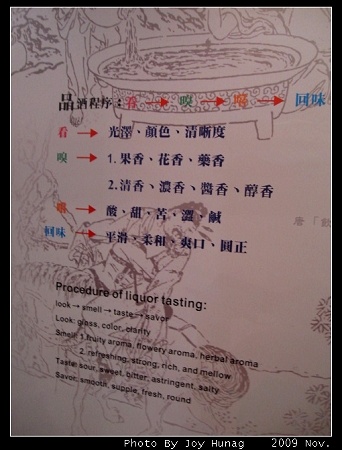 品酒程序：看 → 嗅 → 嚐 → 回味
看 → 光澤、顏色、清晰度
嗅 → 1.果香、花香、藥香
2.清香、濃香、醬香、醇香
嚐 → 酸、甜、苦、澀、鹹
回味 → 平滑、柔和、爽口、圓正
唐「飲
Procedure of liquor tasting:
look → smell → taste → savor
Look: glass, color, clarity
Smell: 1.fruity aroma, flowery aroma, herbal aroma
2. refreshing, strong, rich, and mellow
Taste: sour, sweet, bitter, astringent, salty
Savor: smooth, supple, fresh, round
Photo By Joy Hunag 2009 Nov.